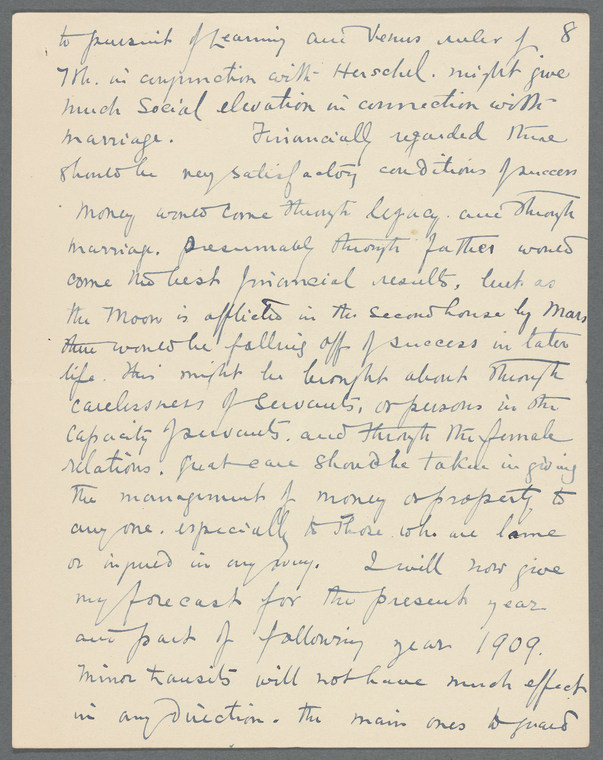 to pursuit of Learning and Venus ruler of 8
7th. in conjunction with Herschel. might give
much Social elevation in connection with
marriage. Financially regarded there
should be very satisfactory conditions of success
Money would come through legacy. and through
marriage. Presumably through father would
come the best financial results, but as
the Moon is afflicted in the second house by Mars
there would be falling off of success in later
life. this might be brought about through
carelessness of Servants, or persons in the
capacity of servants. and through the female
relations. great care should be taken in giving
the management of money or property to
any one. especially to those who are lame
or injured in any way. I will now give
my forecast for the present year
and part of following year 1909.
Minor transits will not have much effect
in any direction. the main ones to guard